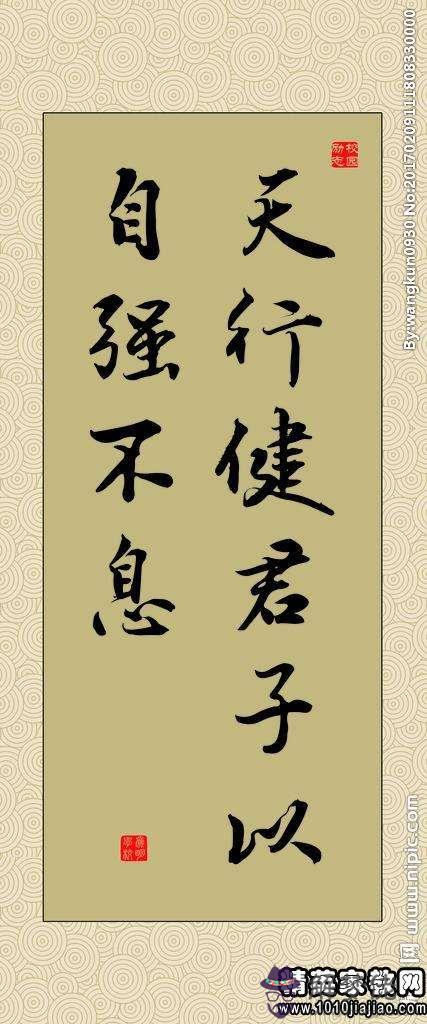 天行健君子以
自强不息
校园
励志
By:wangkun0930 No:20170209111808330000
www.nipic.com
精英家教网
www.1010jiajiao.com